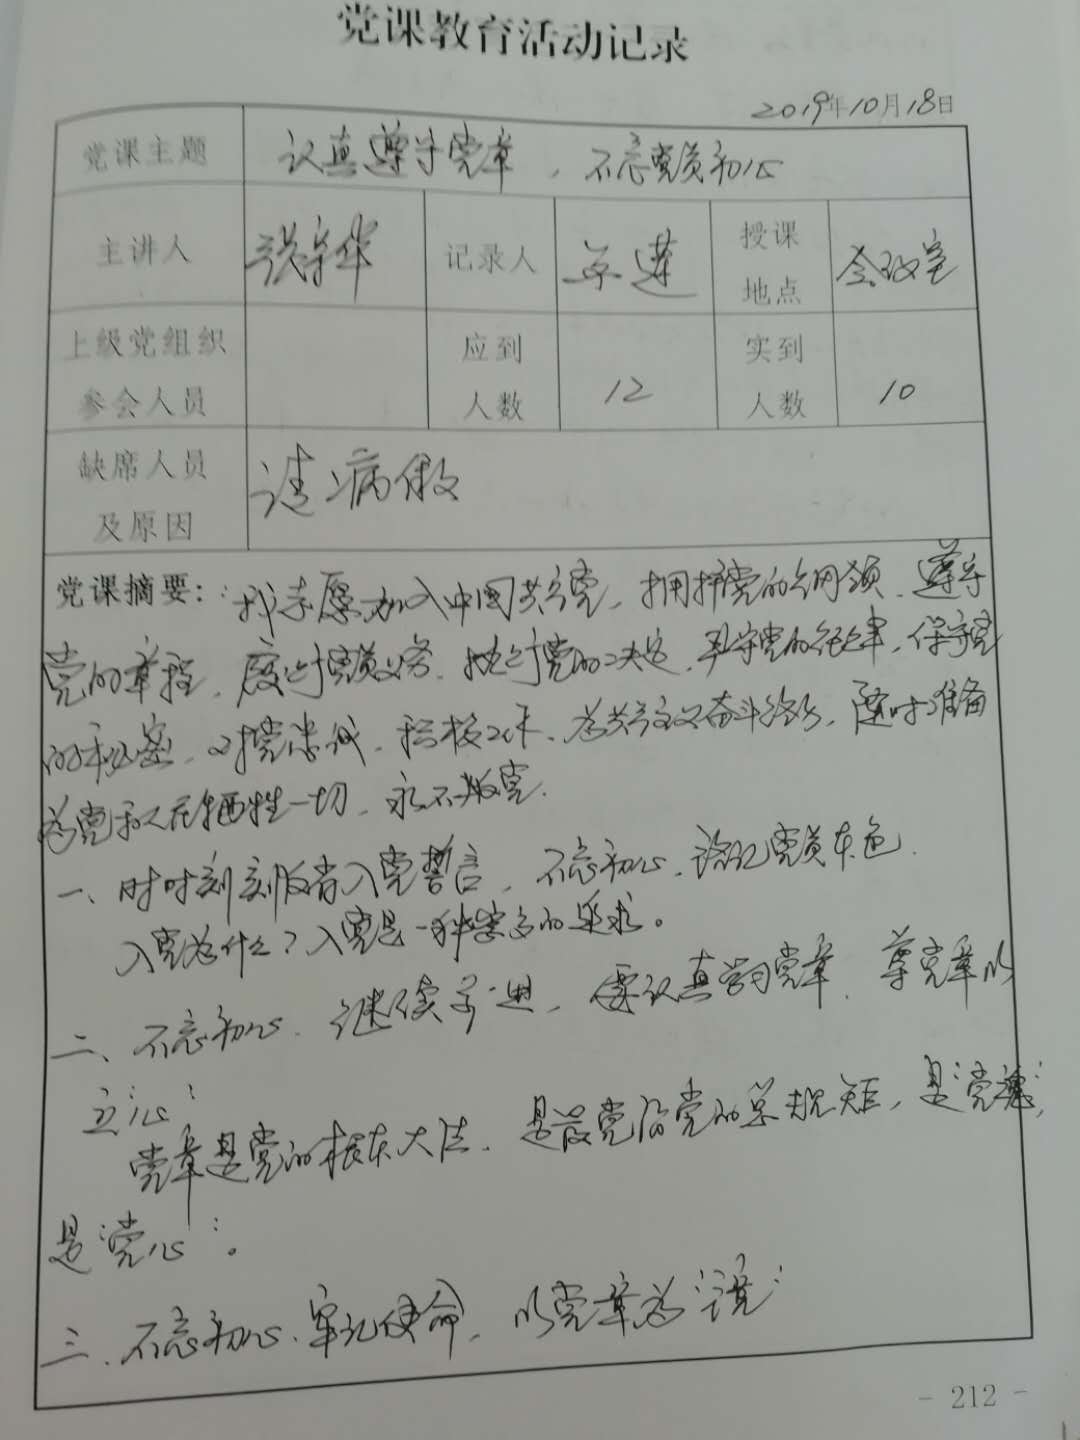 党课教育活动记录
2019年10月18日
党课主题 认真遵守党章，不忘党员初心
主讲人 张宗华 记录人 授课地点 会议室
上级党组织参会人员 应到人数 12 实到人数 10
缺席人员及原因 请病假
党课摘要：我志愿加入中国共产党，拥护党的纲领、遵守
党的章程，履行党员义务，执行党的决定，严守党的纪律，保守党
的秘密，对党忠诚，积极工作，为共产主义奋斗终身，随时准备
为党和人民牺牲一切，永不叛党.
一、时时刻刻反省入党誓言，不忘初心，谨记党员本色.
入党为什么？入党是一种崇高的追求。
二、不忘初心.继续前进，要认真学习党章，尊党章以
立“心”
党章是党的根本大法、是管党治党的总规矩，是“党魂”，
是“党心”。
三、不忘初心、牢记使命，以党章为“镜”
- 212 -